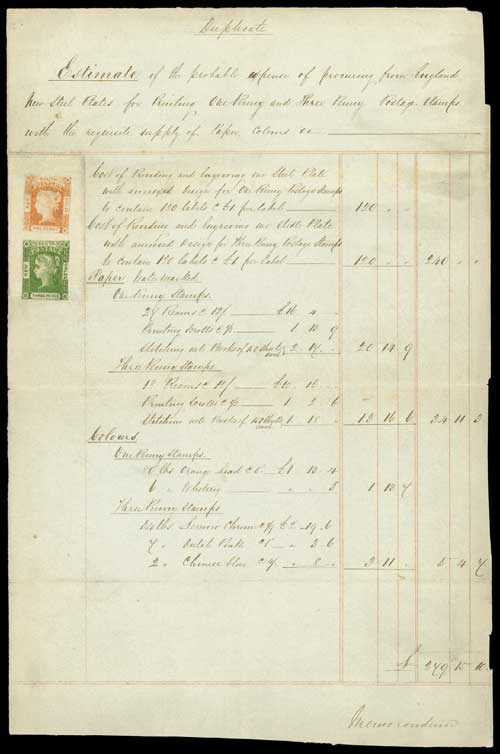 Duplicate
Estimate of the probable expense of procuring from England
New Steel Plates for Printing One Penny and Three Penny Postage Stamps
with the requisite supply of Paper, Colours &c
Cost of Providing and Engraving one Steel Plate
with design for One Penny Postage Stamps
to contain 120 labels @ £1 per label 120 " "
Cost of Providing and Engraving one Steel Plate
with design for Three Penny Postage Stamps
to contain 120 labels @ £1 per label 120 " " 240 " "
Paper. Watermarked
One Penny Stamps.
Reams @ 12/ £16 4 "
Printing 1 10 9
Stitching into Books of 20 14 9
Three Penny Stamps
Reams @ 12/ 16 "
Printing 1 2 6
Stitching into Books of 1 18 " 13 16 6 34 11 3
Colours
One Penny Stamps.
lbs Orange Lead £1 10 4
6 " 3 1 10 7
Three Penny Stamps
lbs Lemon Chrome 19 6
7 " Dutch Pink 3 6
2 " Chinese blue " 8 " 3 11 " 5 4 7
£ 279 15 10
Memorandum
SOUTH
POSTAGE
NEW
WALES
ONE PENNY
SOUTH
POSTAGE
NEW
WALES
THREE PENCE